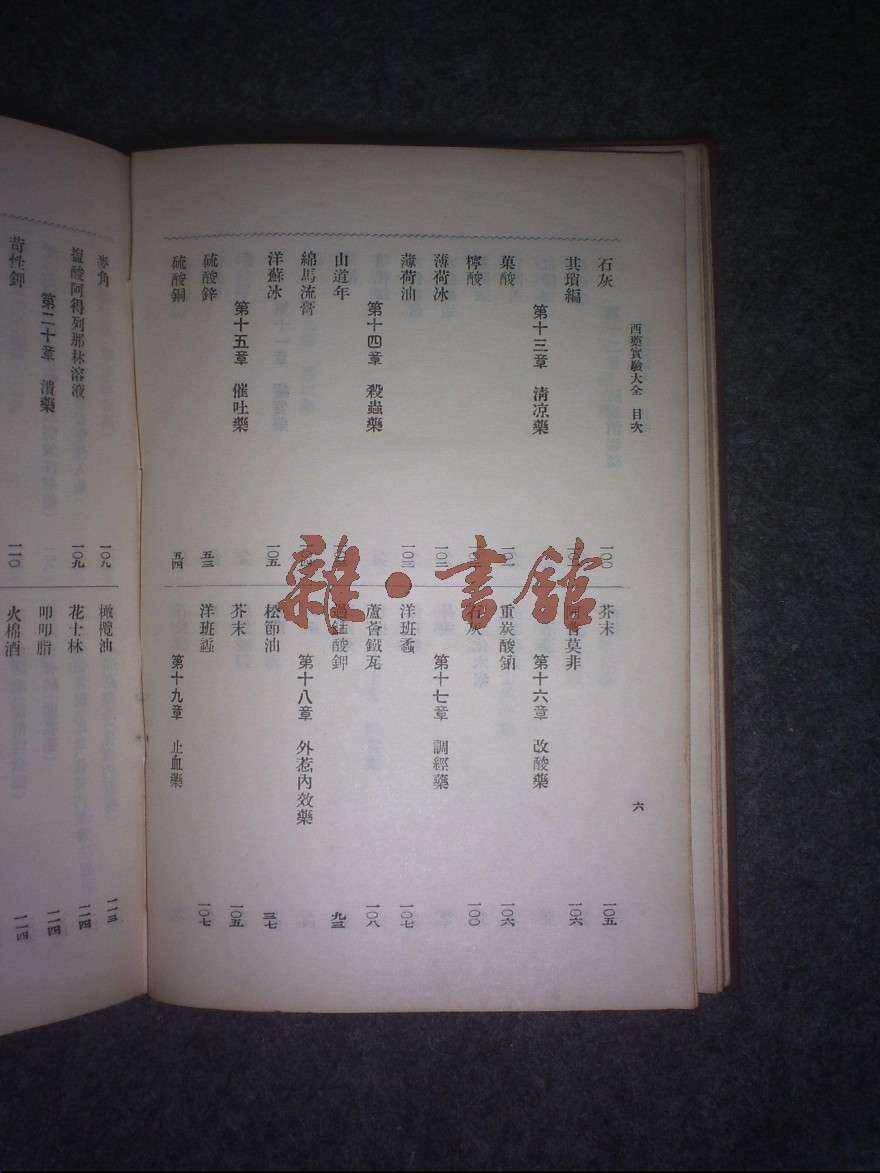 西藥實驗大全 目次
六
石灰 一〇〇
其瑣編
第十三章 清涼藥
菓酸 一〇一
檸酸
薄荷冰 一〇二
薄荷油 一〇三
第十四章 殺蟲藥
山道年
綿馬流膏
洋蘇冰 一〇五
第十五章 催吐藥
硫酸鋅 五三
硫酸銅 五四
芥末 一〇五
阿普莫非 一〇六
第十六章 改酸藥
重炭酸鈉 一〇六
石灰 一〇〇
第十七章 調經藥
洋班蝥 一〇七
蘆薈鐵丸 一〇八
過錳酸鉀 九三
第十八章 外惹內效藥
松節油 三七
芥末 一〇五
洋班蝥 一〇七
第十九章 止血藥
麥角 一〇九
塩酸阿得列那林溶液 一〇九
第二十章 潰藥
苛性鉀 一一〇
橄欖油 一一三
花士林 一一四
叩叩脂 一一四
火棉酒 一一四
雜·書館